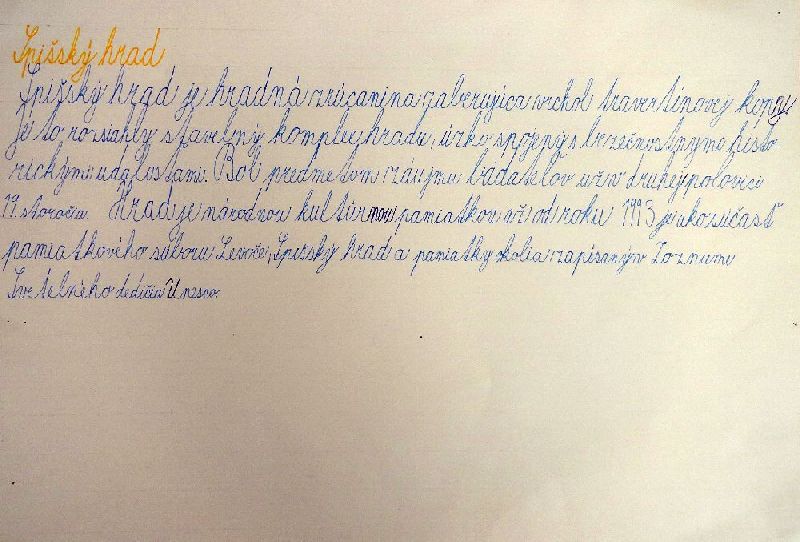 Spišský hrad
Spišský hrad je hradná zrúcanina zaberajúca vrchol travertínovej kopy.
Je to rozsiahly stavebný komplex hradu, úzko spojený s
rickými udalosťami. Bol predmetom záujmu bádateľov už v druhej polovici
19. storočia. Hrad je národnou kultúrnou pamiatkou už od roku 1993 je ako súčasť
pamiatkového súboru Levoča, Spišský hrad a pamiatky okolia zapísaný v Zoznamu
Svetelného dedičstva Unesco.